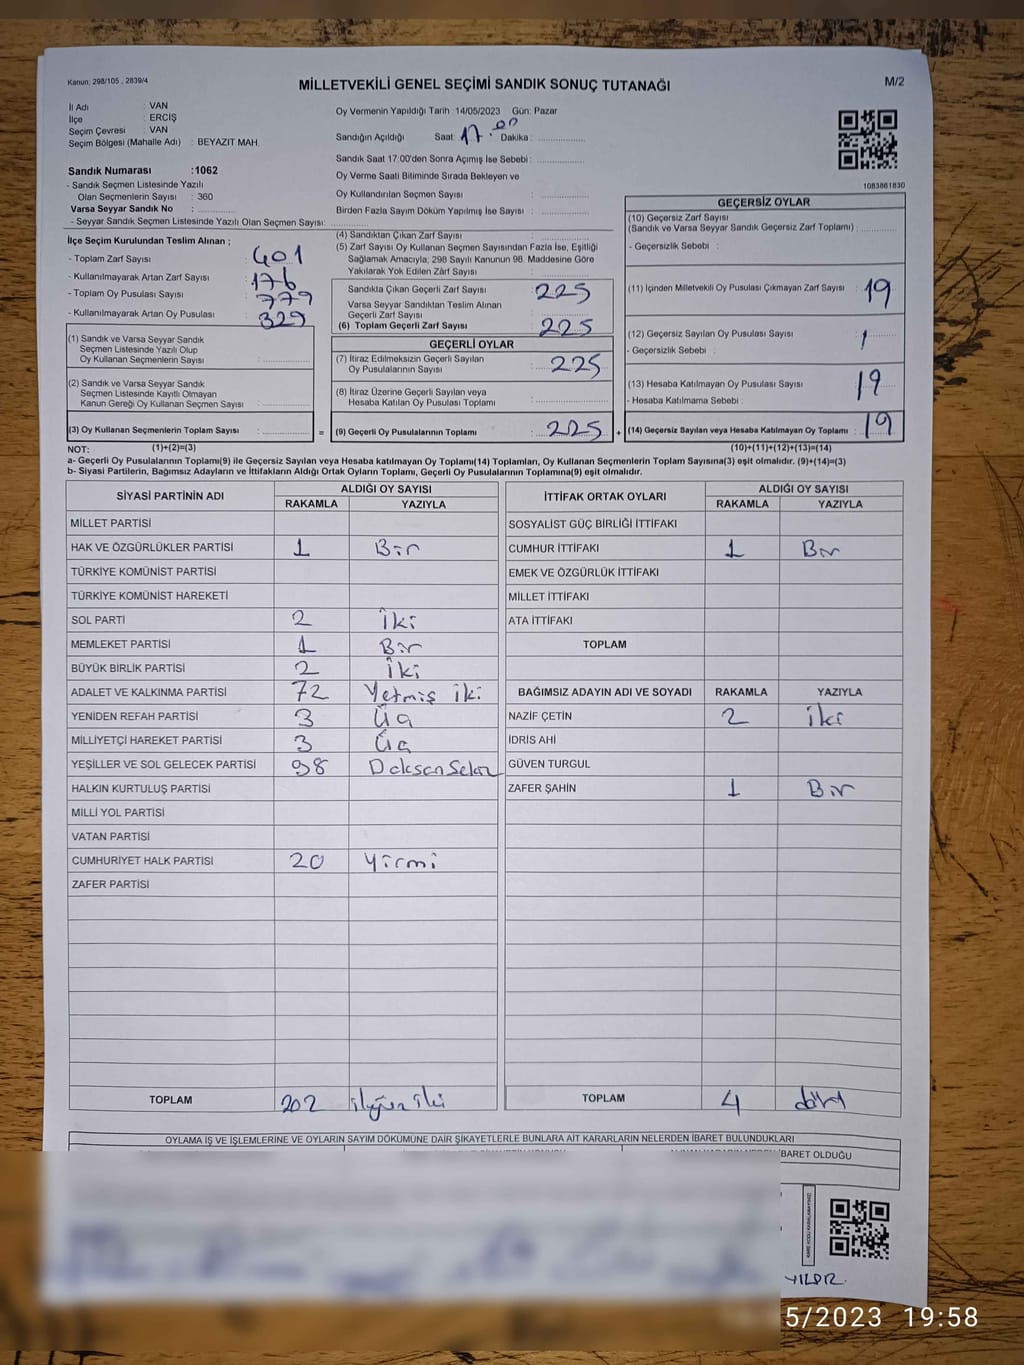 Kanun: 298/105 , 2839/4
MİLLETVEKİLİ GENEL SEÇİMİ SANDIK SONUÇ TUTANAĞI
M/2
İl Adı : VAN
İlçe : ERCİŞ
Seçim Çevresi : VAN
Seçim Bölgesi (Mahalle Adı) : BEYAZIT MAH.
Oy Vermenin Yapıldığı Tarih : 14/05/2023 Gün: Pazar
Sandığın Açıldığı Saat: 17.00 Dakika :
Sandık Saat 17:00'den Sonra Açımış İse Sebebi :
Oy Verme Saati Bitiminde Sırada Bekleyen ve
Oy Kullandırılan Seçmen Sayısı :
Birden Fazla Sayım Döküm Yapılmış İse Sayısı :
1083861830
Sandık Numarası :1062
- Sandık Seçmen Listesinde Yazılı
Olan Seçmenlerin Sayısı : 360
Varsa Seyyar Sandık No :
- Seyyar Sandık Seçmen Listesinde Yazılı Olan Seçmen Sayısı:
İlçe Seçim Kurulundan Teslim Alınan ;
- Toplam Zarf Sayısı : 401
- Kullanılmayarak Artan Zarf Sayısı : 176
- Toplam Oy Pusulası Sayısı : 779
- Kullanılmayarak Artan Oy Pusulası : 329
(1) Sandık ve Varsa Seyyar Sandık
Seçmen Listesinde Yazılı Olup
Oy Kullanan Seçmenlerin Sayısı :
(2) Sandık ve Varsa Seyyar Sandık
Seçmen Listesinde Kayıtlı Olmayan
Kanun Gereği Oy Kullanan Seçmen Sayısı :
(3) Oy Kullanan Seçmenlerin Toplam Sayısı :
(4) Sandıktan Çıkan Zarf Sayısı :
(5) Zarf Sayısı Oy Kullanan Seçmen Sayısından Fazla İse, Eşitliği
Sağlamak Amacıyla; 298 Sayılı Kanunun 98. Maddesine Göre
Yakılarak Yok Edilen Zarf Sayısı :
Sandıkla Çıkan Geçerli Zarf Sayısı : 225
Varsa Seyyar Sandıktan Teslim Alınan
Geçerli Zarf Sayısı :
(6) Toplam Geçerli Zarf Sayısı : 225
GEÇERLİ OYLAR
(7) İtiraz Edilmeksizin Geçerli Sayılan
Oy Pusulalarının Sayısı : 225
(8) İtiraz Üzerine Geçerli Sayılan veya
Hesaba Katılan Oy Pusulası Toplamı :
= (9) Geçerli Oy Pusulalarının Toplamı : 225
GEÇERSİZ OYLAR
(10) Geçersiz Zarf Sayısı
(Sandık ve Varsa Seyyar Sandık Geçersiz Zarf Toplamı) :
- Geçersizlik Sebebi :
(11) İçinden Milletvekili Oy Pusulası Çıkmayan Zarf Sayısı : 19
(12) Geçersiz Sayılan Oy Pusulası Sayısı : 1
- Geçersizlik Sebebi :
(13) Hesaba Katılmayan Oy Pusulası Sayısı : 19
- Hesaba Katılmama Sebebi :
+ (14) Geçersiz Sayılan veya Hesaba Katılmayan Oy Toplamı : 19
NOT: (1)+(2)=(3)
(10)+(11)+(12)+(13)=(14)
a- Geçerli Oy Pusulalarının Toplamı(9) ile Geçersiz Sayılan veya Hesaba katılmayan Oy Toplamı(14) Toplamları, Oy Kullanan Seçmenlerin Toplam Sayısına(3) eşit olmalıdır. (9)+(14)=(3)
b- Siyasi Partilerin, Bağımsız Adayların ve İttifakların Aldığı Ortak Oyların Toplamı, Geçerli Oy Pusulalarının Toplamına(9) eşit olmalıdır.
SİYASİ PARTİNİN ADI
ALDIĞI OY SAYISI
RAKAMLA YAZIYLA
MİLLET PARTİSİ
HAK VE ÖZGÜRLÜKLER PARTİSİ 1 Bir
TÜRKİYE KOMÜNİST PARTİSİ
TÜRKİYE KOMÜNİST HAREKETİ
SOL PARTİ 2 İki
MEMLEKET PARTİSİ 1 Bir
BÜYÜK BİRLİK PARTİSİ 2 İki
ADALET VE KALKINMA PARTİSİ 72 Yetmiş iki
YENİDEN REFAH PARTİSİ 3 Üç
MİLLİYETÇİ HAREKET PARTİSİ 3 Üç
YEŞİLLER VE SOL GELECEK PARTİSİ 98
HALKIN KURTULUŞ PARTİSİ
MİLLİ YOL PARTİSİ
VATAN PARTİSİ
CUMHURİYET HALK PARTİSİ 20 Yirmi
ZAFER PARTİSİ
TOPLAM 202
İTTİFAK ORTAK OYLARI
ALDIĞI OY SAYISI
RAKAMLA YAZIYLA
SOSYALİST GÜÇ BİRLİĞİ İTTİFAKI
CUMHUR İTTİFAKI 1 Bir
EMEK VE ÖZGÜRLÜK İTTİFAKI
MİLLET İTTİFAKI
ATA İTTİFAKI
TOPLAM
BAĞIMSIZ ADAYIN ADI VE SOYADI RAKAMLA YAZIYLA
NAZİF ÇETİN 2 iki
İDRİS AHİ
GÜVEN TURGUL
ZAFER ŞAHİN 1 Bir
TOPLAM 4 dört
OYLAMA İŞ VE İŞLEMLERİNE VE OYLARIN SAYIM DÖKÜMÜNE DAİR ŞİKAYETLERLE BUNLARA AİT KARARLARIN NELERDEN İBARET BULUNDUKLARI
İBARET OLDUĞU
YILDIZ.
5/2023 19:58